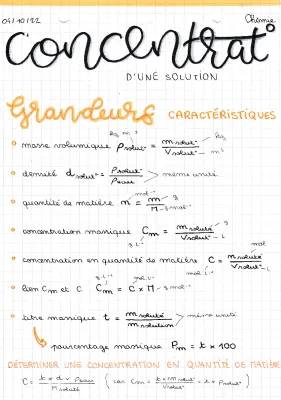 04/10/22 Chimie
Concentrat°
D'UNE SOLUTION
Grandeurs CARACTÉRISTIQUES
masse volumique ρsolut° = msolut° / Vsolut° kg.m⁻³ kg m³
densité dsolut° = ρsolut° / ρeau > même unité
quantité de matière n = m / M mol g g.mol⁻¹
concentration massique Cm = msoluté / Vsolut° g.L⁻¹ g L
concentration en quantité de matière C = nsoluté / Vsolut° mol.L⁻¹ mol L
lien Cm et C Cm = C × M g.L⁻¹ mol.L⁻¹ g.mol⁻¹
titre massique t = msoluté / msolution > même unité
pourcentage massique Pm = t × 100
DÉTERMINER UNE CONCENTRATION EN QUANTITÉ DE MATIÈRE
C = t × d × ρeau / Msoluté (car Cm = t × msolut° / Vsolut° = t × ρsolut°)